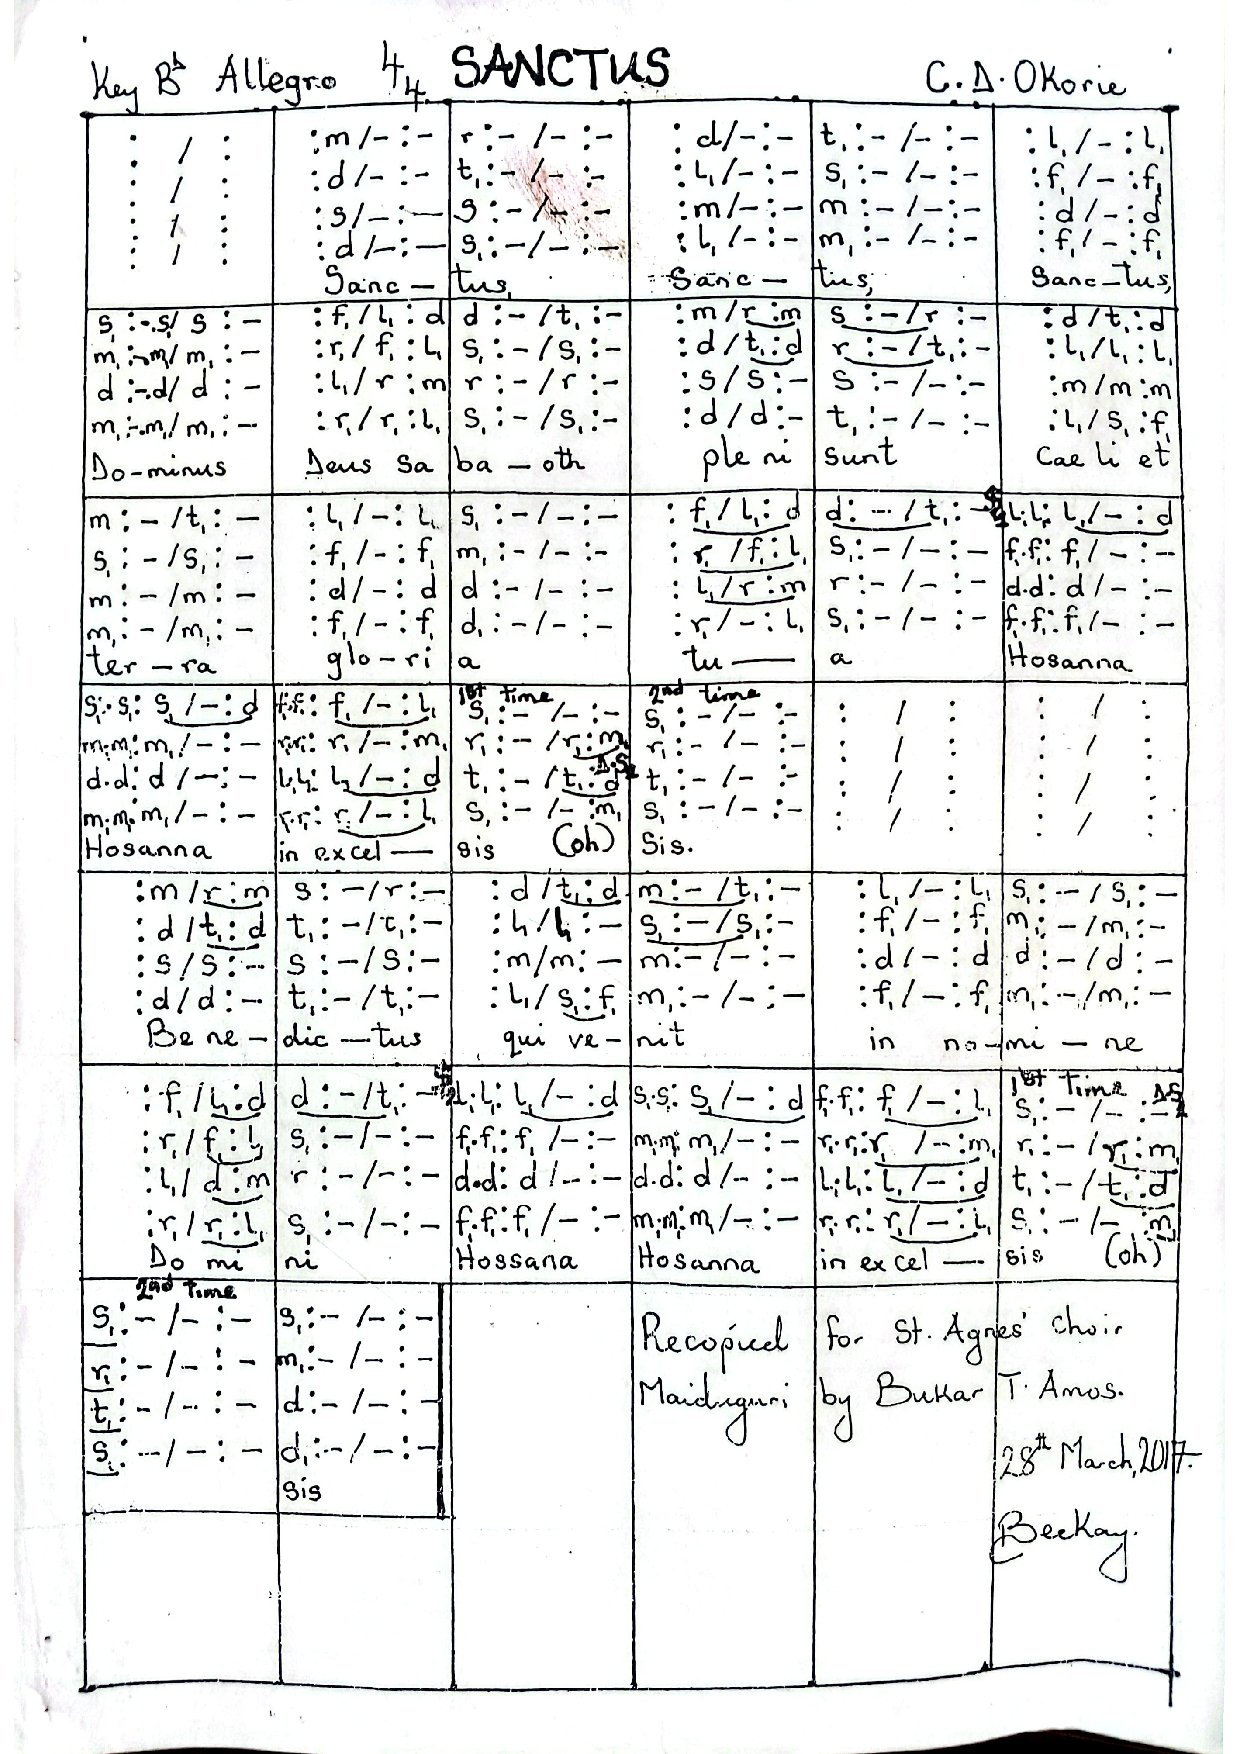 Key B♭ Allegro 4/4 SANCTUS C.D. Okorie
: / : | : m /- : - | r : - /- : - | : d /- : - | t, : - /- : - | : l, /- : l,
: / : | : d /- : - | t, : - /- : - | : l, /- : - | s, : - /- : - | : f, /- : f,
: / : | : s /- : - | s : - /- : - | : m /- : - | m : - /- : - | : d /- : d
: / : | : d /- : - | s, : - /- : - | : l, /- : - | m, : - /- : - | : f, /- : f,
Sanc - tus, Sanc - tus, Sanc - tus,
s, : -.s, / s, : - | : f, / l, : d | d : - / t, : - | : m / r : m | s : - / r : - | : d / t, : d
m, : -.m, / m, : - | : r, / f, : l, | s, : - / s, : - | : d / t, : d | r : - / t, : - | : l, / l, : l,
d : -.d / d : - | : l, / r : m | r : - / r : - | : s / s : - | s : - /- : - | : m / m : m
m, : -.m, / m, : - | : r, / r, : l, | s, : - / s, : - | : d / d : - | t, : - /- : - | : l, / s, : f,
Do-minus Deus Sa ba - oth ple ni sunt Cae li et
m : - / t, : - | : l, /- : l, | s, : - /- : - | : f, / l, : d | d : - / t, : - | 𝄋 l,.l, : l, /- : d
s, : - / s, : - | : f, /- : f, | m, : - /- : - | : r, / f, : l, | s, : - /- : - | f,.f, : f, /- : -
m : - / m : - | : d /- : d | d : - /- : - | : l, / r : m | r : - /- : - | d.d : d /- : -
m, : - / m, : - | : f, /- : f, | d, : - /- : - | : r, /- : l, | s, : - /- : - | f,.f, : f, /- : -
ter - ra glo - ri a tu — a Hosanna
1st time 2nd time
s,.s, : s, /- : d | f,.f, : f, /- : l, | s, : - /- : - | s, : - /- : - | : / : | : / :
m,.m, : m, /- : - | r,.r, : r, /- : m, | r, : - / r, : m, | r, : - /- : - | : / : | : / :
D.S
d.d : d /- : - | l,.l, : l, /- : d | t, : - / t, : d | t, : - /- : - | : / : | : / :
m,.m, : m, /- : - | r,.r, : r, /- : l, | s, : - /- : m, | s, : - /- : - | : / : | : / :
Hosanna in excel — sis (oh) Sis.
: m / r : m | s : - / r : - | : d / t, : d | m : - / t, : - | : l, /- : l, | s, : - / s, : -
: d / t, : d | t, : - / t, : - | : l, / l, : - | s, : - / s, : - | : f, /- : f, | m, : - / m, : -
: s / s : - | s : - / s : - | : m / m : - | m : - /- : - | : d /- : d | d : - / d : -
: d / d : - | t, : - / t, : - | : l, / s, : f, | m, : - /- : - | : f, /- : f, | m, : - / m, : -
Be ne - dic - tus qui ve - nit in no - mi - ne
1st Time D.S
: f, / l, : d | d : - / t, : - | 𝄋 l,.l, : l, /- : d | s,.s, : s, /- : d | f,.f, : f, /- : l, | s, : - /- : -
: r, / f, : l, | s, : - /- : - | f,.f, : f, /- : - | m,.m, : m, /- : - | r,.r, : r, /- : m, | r, : - / r, : m,
: l, / d : m | r : - /- : - | d.d : d /- : - | d.d : d /- : - | l,.l, : l, /- : d | t, : - / t, : d
: r, / r, : l, | s, : - /- : - | f,.f, : f, /- : - | m,.m, : m, /- : - | r,.r, : r, /- : l, | s, : - /- : m,
Do mi ni Hossana Hosanna in excel — sis (oh)
2nd time
s, : - /- : - | s, : - /- : -
r, : - /- : - | m, : - /- : -
t, : - /- : - | d : - /- : -
s, : - /- : - | d, : - /- : -
sis
Recopied for St. Agnes' Choir
Maiduguri by Bukar T. Amos.
28th March, 2017.
Beekay.